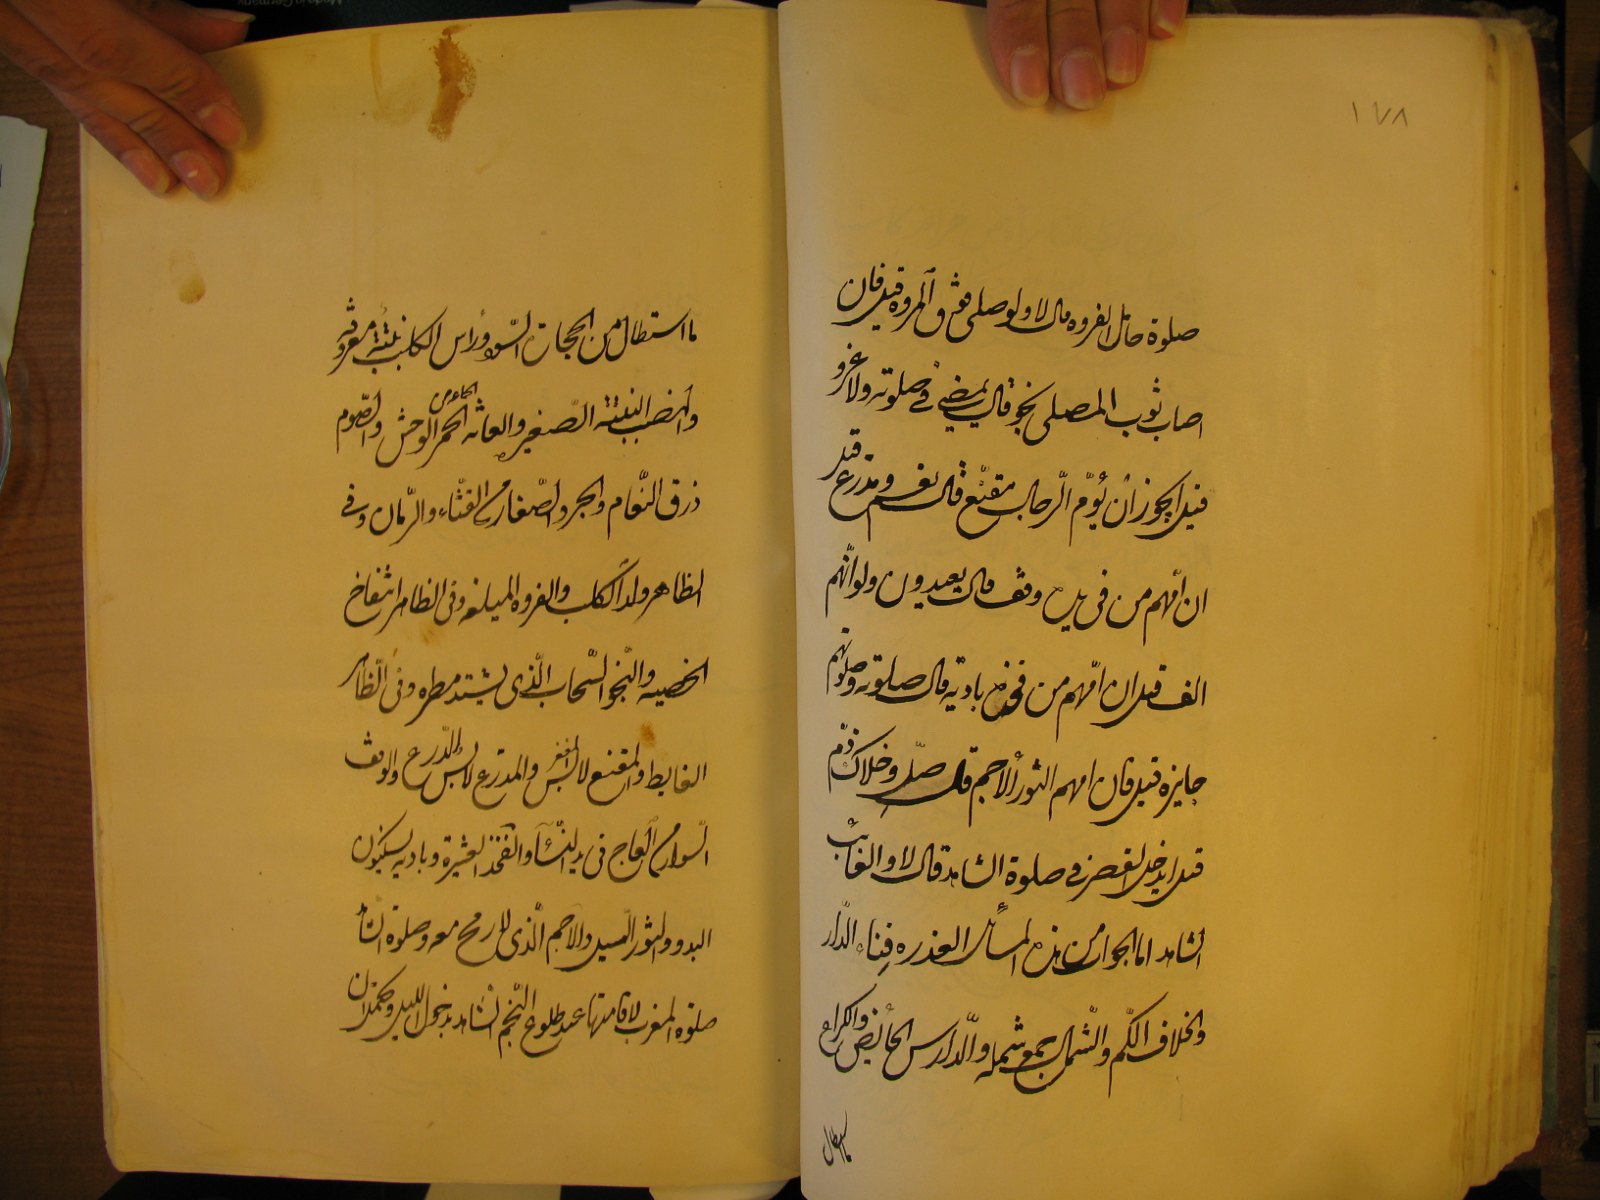 ١٧٨
صلوة حامل القروه قال لا ولو صلى فوق المروه قيل فان
اصاب ثوب المصلى نجو قال يمضى فى صلوته ولا غرو
قيل ايجوز ان يؤم الرجال مقنع قال نعم ومدرع قيل
ان امهم من فى يده وقف قال يعيدون ولو انهم
الف قيل ان امهم من فخذه بادية قال صلوته وصلوتهم
جايزه قيل فان امهم الثور الاجم قال صل وخلاك ذم
قيل ايدخل القصر فى صلوة الشاهد قال لا والغائب
الشاهد اما الجواب من هذه المسائل العذره فناء الدار
والخلاف الكم والشمال جمع شمله والدارس الحائض والكراع
ما استطال
ما استطال من الحجات السود وراس الكلب ثنية معروفه
والهضب الثنية الصغير والعانة الحمر الوحش والصوم
ذرق النعام والجرو الصغار من القثاء والرمان وفى
الظاهر ولد الكلب والقروه الميلغه وفى الظاهر انتفاخ
الخصيه والنجو السحاب الذى يشتد مطره وفى الظاهر
الغايط والمقنع لابس المغفر والمدرع لابس الدرع والوقف
السوار من العاج فى يد النساء والفخذ العشيرة وباديه يسكنون
البدو والثور السيد والاجم الذى لا رمح معه وصلوة الشاهد
صلوه المغرب لاقامتها عند طلوع النجم الشاهد بدخول الليل